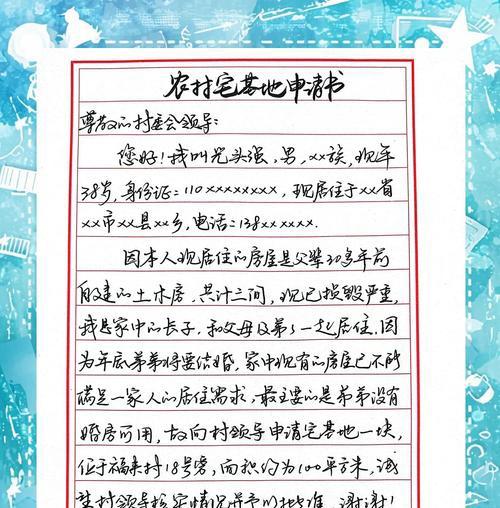 农村宅基地申请书
尊敬的村委会领导:
您好!我叫光头强,男,xx族,现年
38岁,身份证:110xxxxxxxxx,现居住于xx省
xx市xx县xx乡,电话:138xxxxxx.
因本人现居住的房屋是父辈30多年前
所建的土木房,共计三间,现已损毁严重,
我是家中的长子,和父母及弟弟一起居住.因
为年底弟弟将要结婚,家中现有的房屋已不能
满足一家人的居住需求,最主要的是弟弟没有
婚房可用,故向村领导申请宅基地一块,
位于福来村18号旁,面积约为100平方米,诚
望村领导核实情况并予以批准,谢谢!